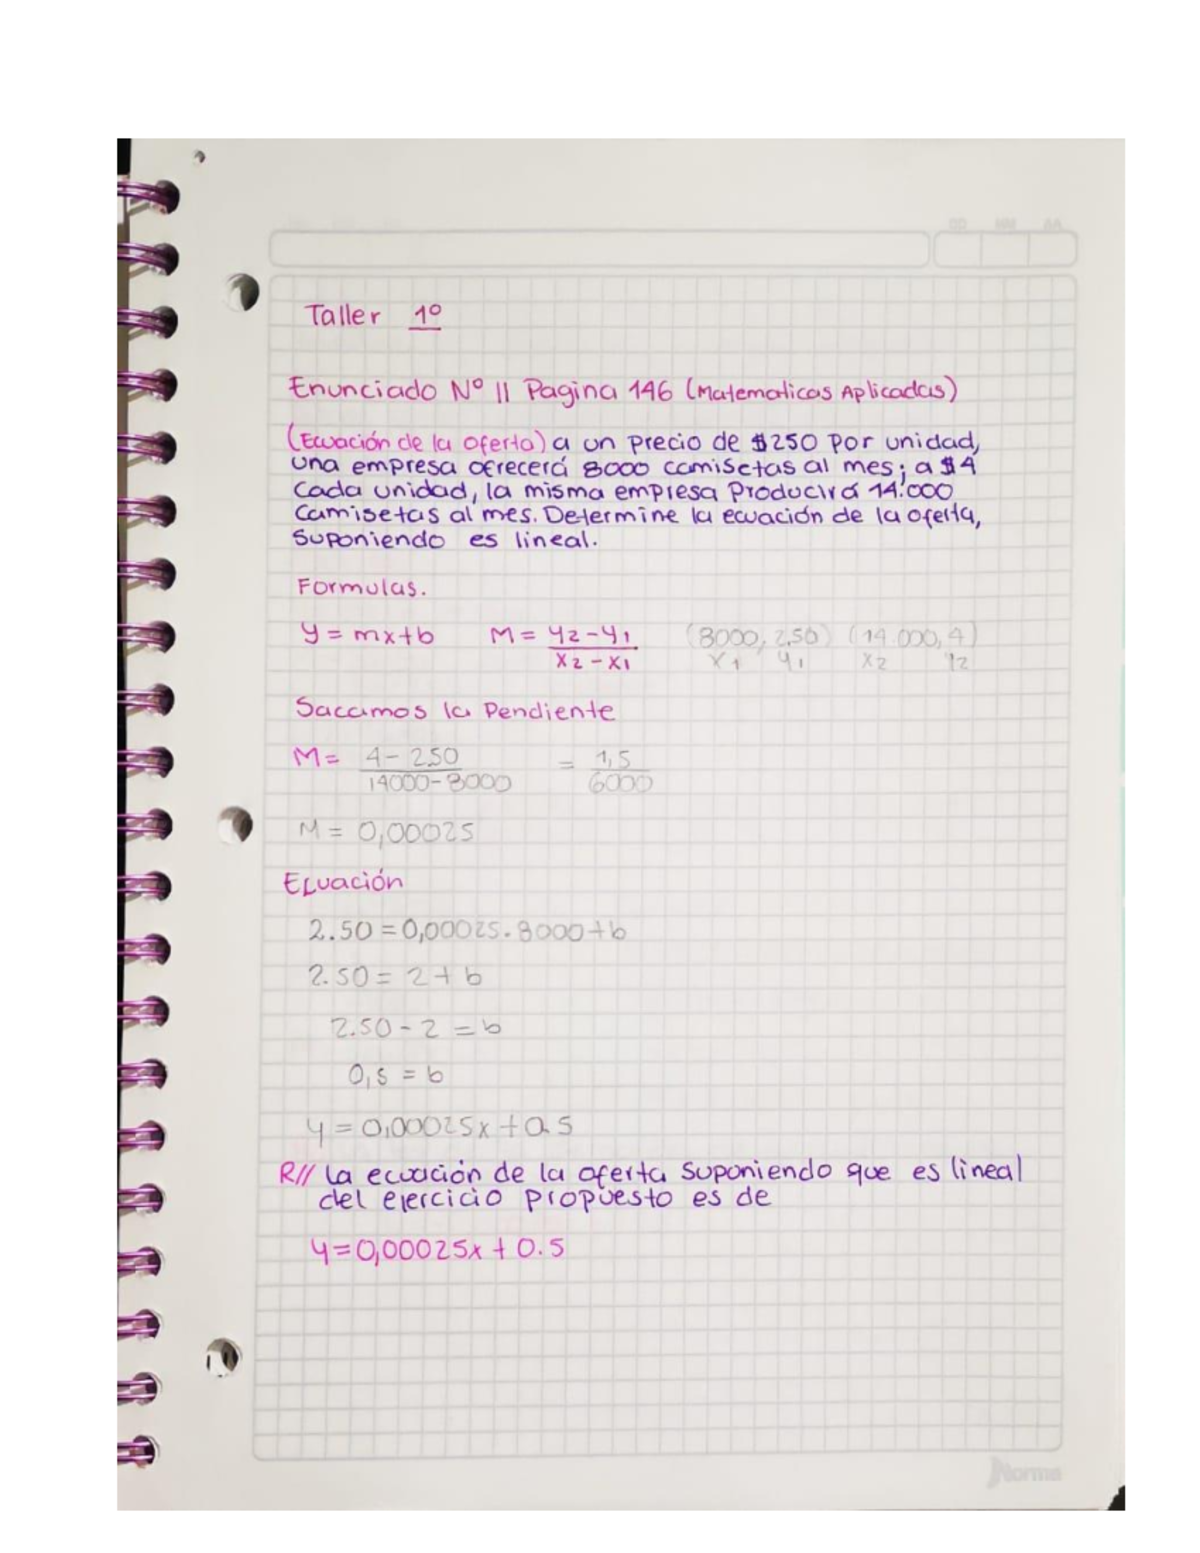 DD MM AA
Taller 1º
Enunciado Nº 11 Pagina 146 (Matematicas Aplicadas)
(Ecuación de la oferta) a un precio de $250 por unidad,
una empresa ofrecerá 8000 camisetas al mes; a $4
Cada unidad, la misma empresa Producirá 14.000
Camisetas al mes. Determine la ecuación de la oferta,
Suponiendo es lineal.
Formulas.
y = mx+b M = y2-y1 (8000, 2,50) (14.000, 4)
x2-x1 x1 y1 x2 y2
Sacamos la Pendiente
M= 4-2.50 = 1,5
14000-8000 6000
M = 0,00025
Ecuación
2.50 = 0,00025.8000+b
2.50 = 2 + b
2.50 - 2 = b
0,5 = b
y = 0,00025x + 0.5
R// La ecuación de la oferta Suponiendo que es lineal
del ejercicio propuesto es de
y=0,00025x + 0.5
Norma